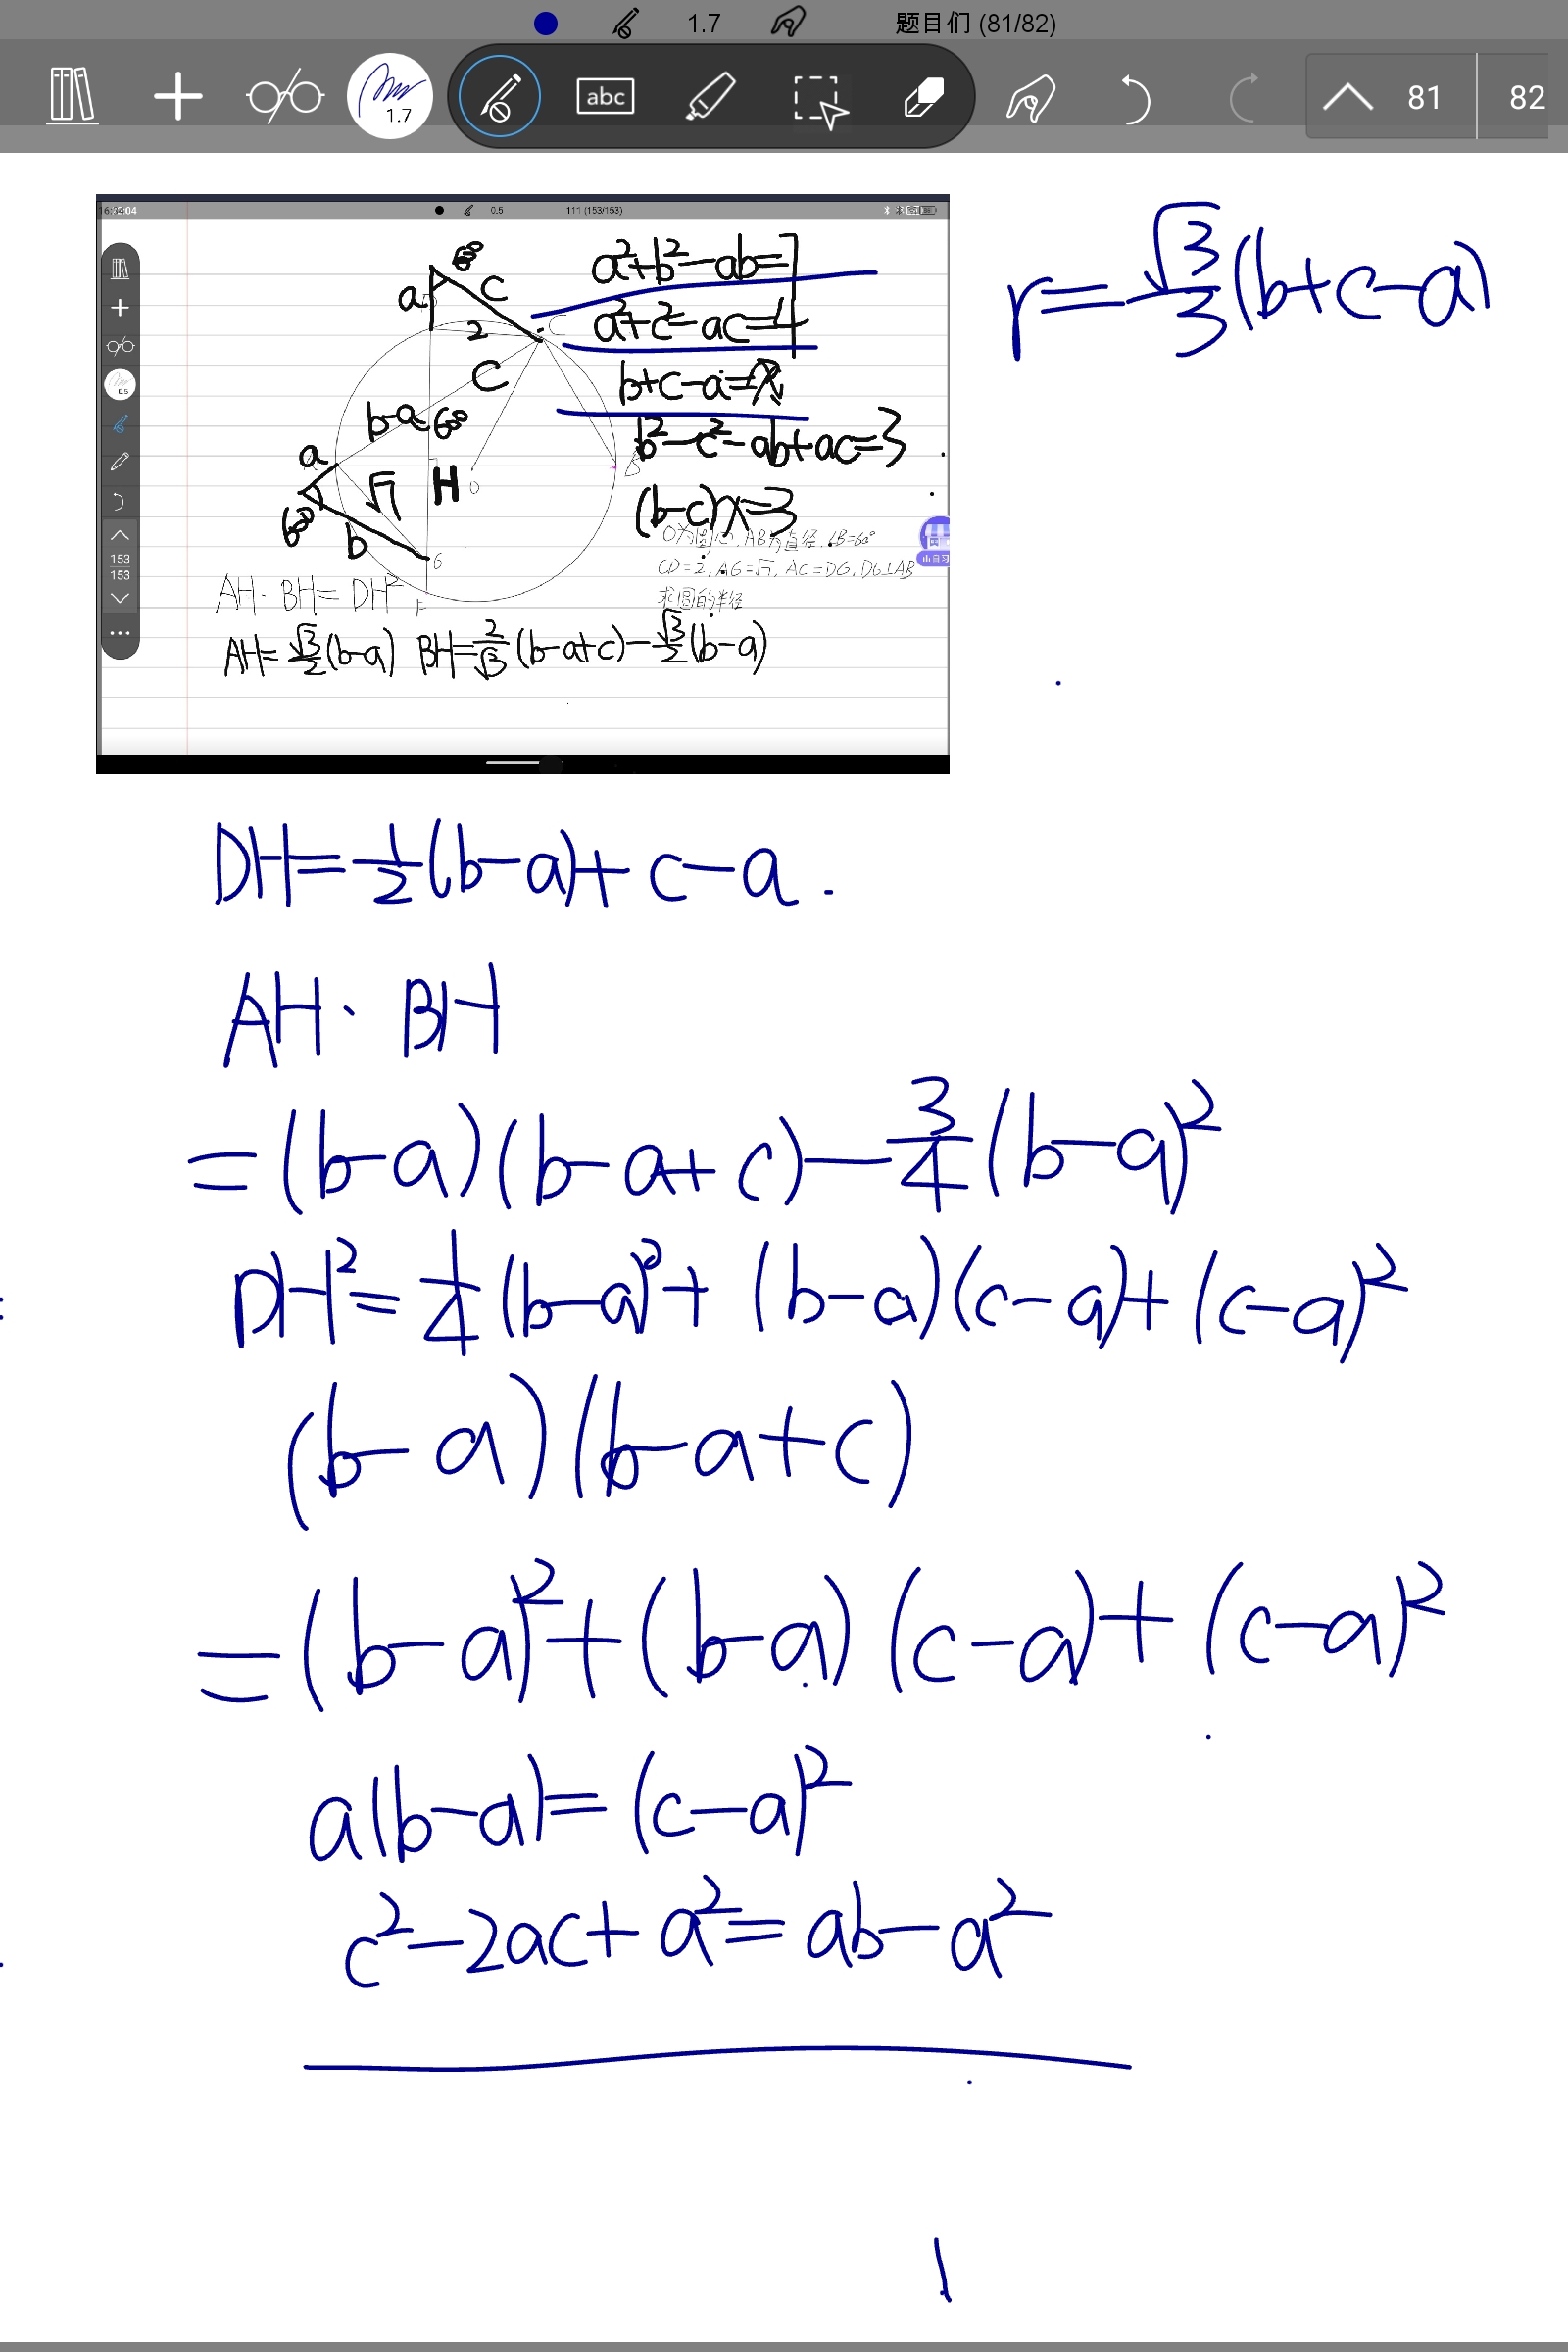 1.7 题目们 (81/82)
1.7 abc 81 82
16:34:04 0.5 111 (153/153)
60°
a c
2 C
c
b-a 60°
a
√7 H O B
60° b G
F
0.5
153
153
a²+b²-ab=7
a²+c²-ac=4
b+c-a=x
b²-c²-ab+ac=3
(b-c)x=3
O为圆心,AB为直径,∠B=60°
CD=2,AG=√7,AC=DG,DG⊥AB
求圆的半径
AH·BH=DH²
AH=√3/2(b-a) BH=2/√3(b-a+c)-√3/2(b-a)
r=√3/3(b+c-a)
DH=1/2(b-a)+c-a.
AH·BH
=(b-a)(b-a+c)-3/4(b-a)²
DH²=1/4(b-a)²+(b-a)(c-a)+(c-a)²
(b-a)(b-a+c)
=(b-a)²+(b-a)(c-a)+(c-a)²
a(b-a)=(c-a)²
c²-2ac+a²=ab-a²